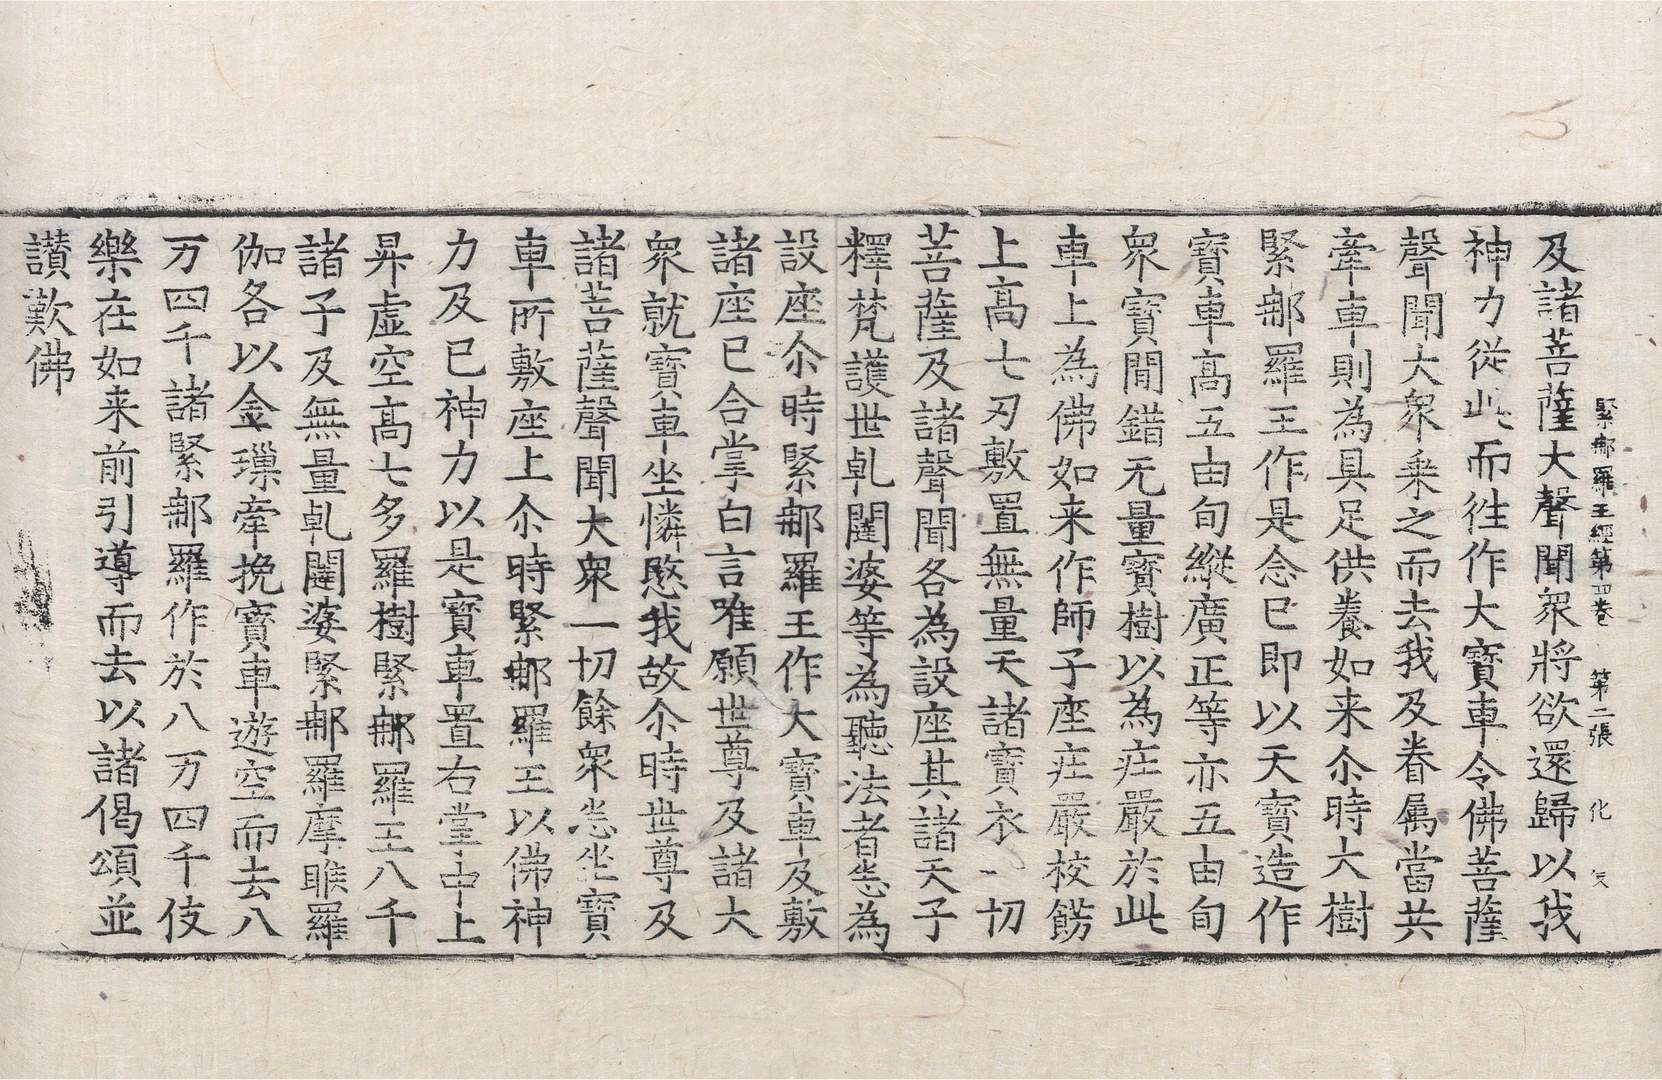 緊那羅王經第四卷　第二張　化
及諸菩薩大聲聞眾將欲還歸以我
神力從此而徃作大寶車令佛菩薩
聲聞大眾乘之而去我及眷属當共
牽車則為具足供養如来尒時大樹
緊那羅王作是念已即以天寶造作
寶車高五由旬縱廣正等亦五由旬
眾寶閒錯无量寶樹以為庄嚴於此
車上為佛如来作師子座庄嚴校餝
上高七刃敷置無量天諸寶衣一切
菩薩及諸聲聞各為設座其諸天子
釋梵護世乹闥婆等為聽法者悉為
設座尒時緊那羅王作大寶車及敷
諸座已合掌白言唯願世尊及諸大
眾就寶車坐憐愍我故尒時世尊及
諸菩薩聲聞大眾一切餘眾悉坐寶
車所敷座上尒時緊那羅王以佛神
力及已神力以是寶車置右掌中上
昇虛空高七多羅樹緊那羅王八千
諸子及無量乹闥婆緊那羅摩睺羅
伽各以金璅牽挽寶車遊空而去八
万四千諸緊那羅作於八万四千伎
樂在如来前引導而去以諸偈頌並
讃歎佛